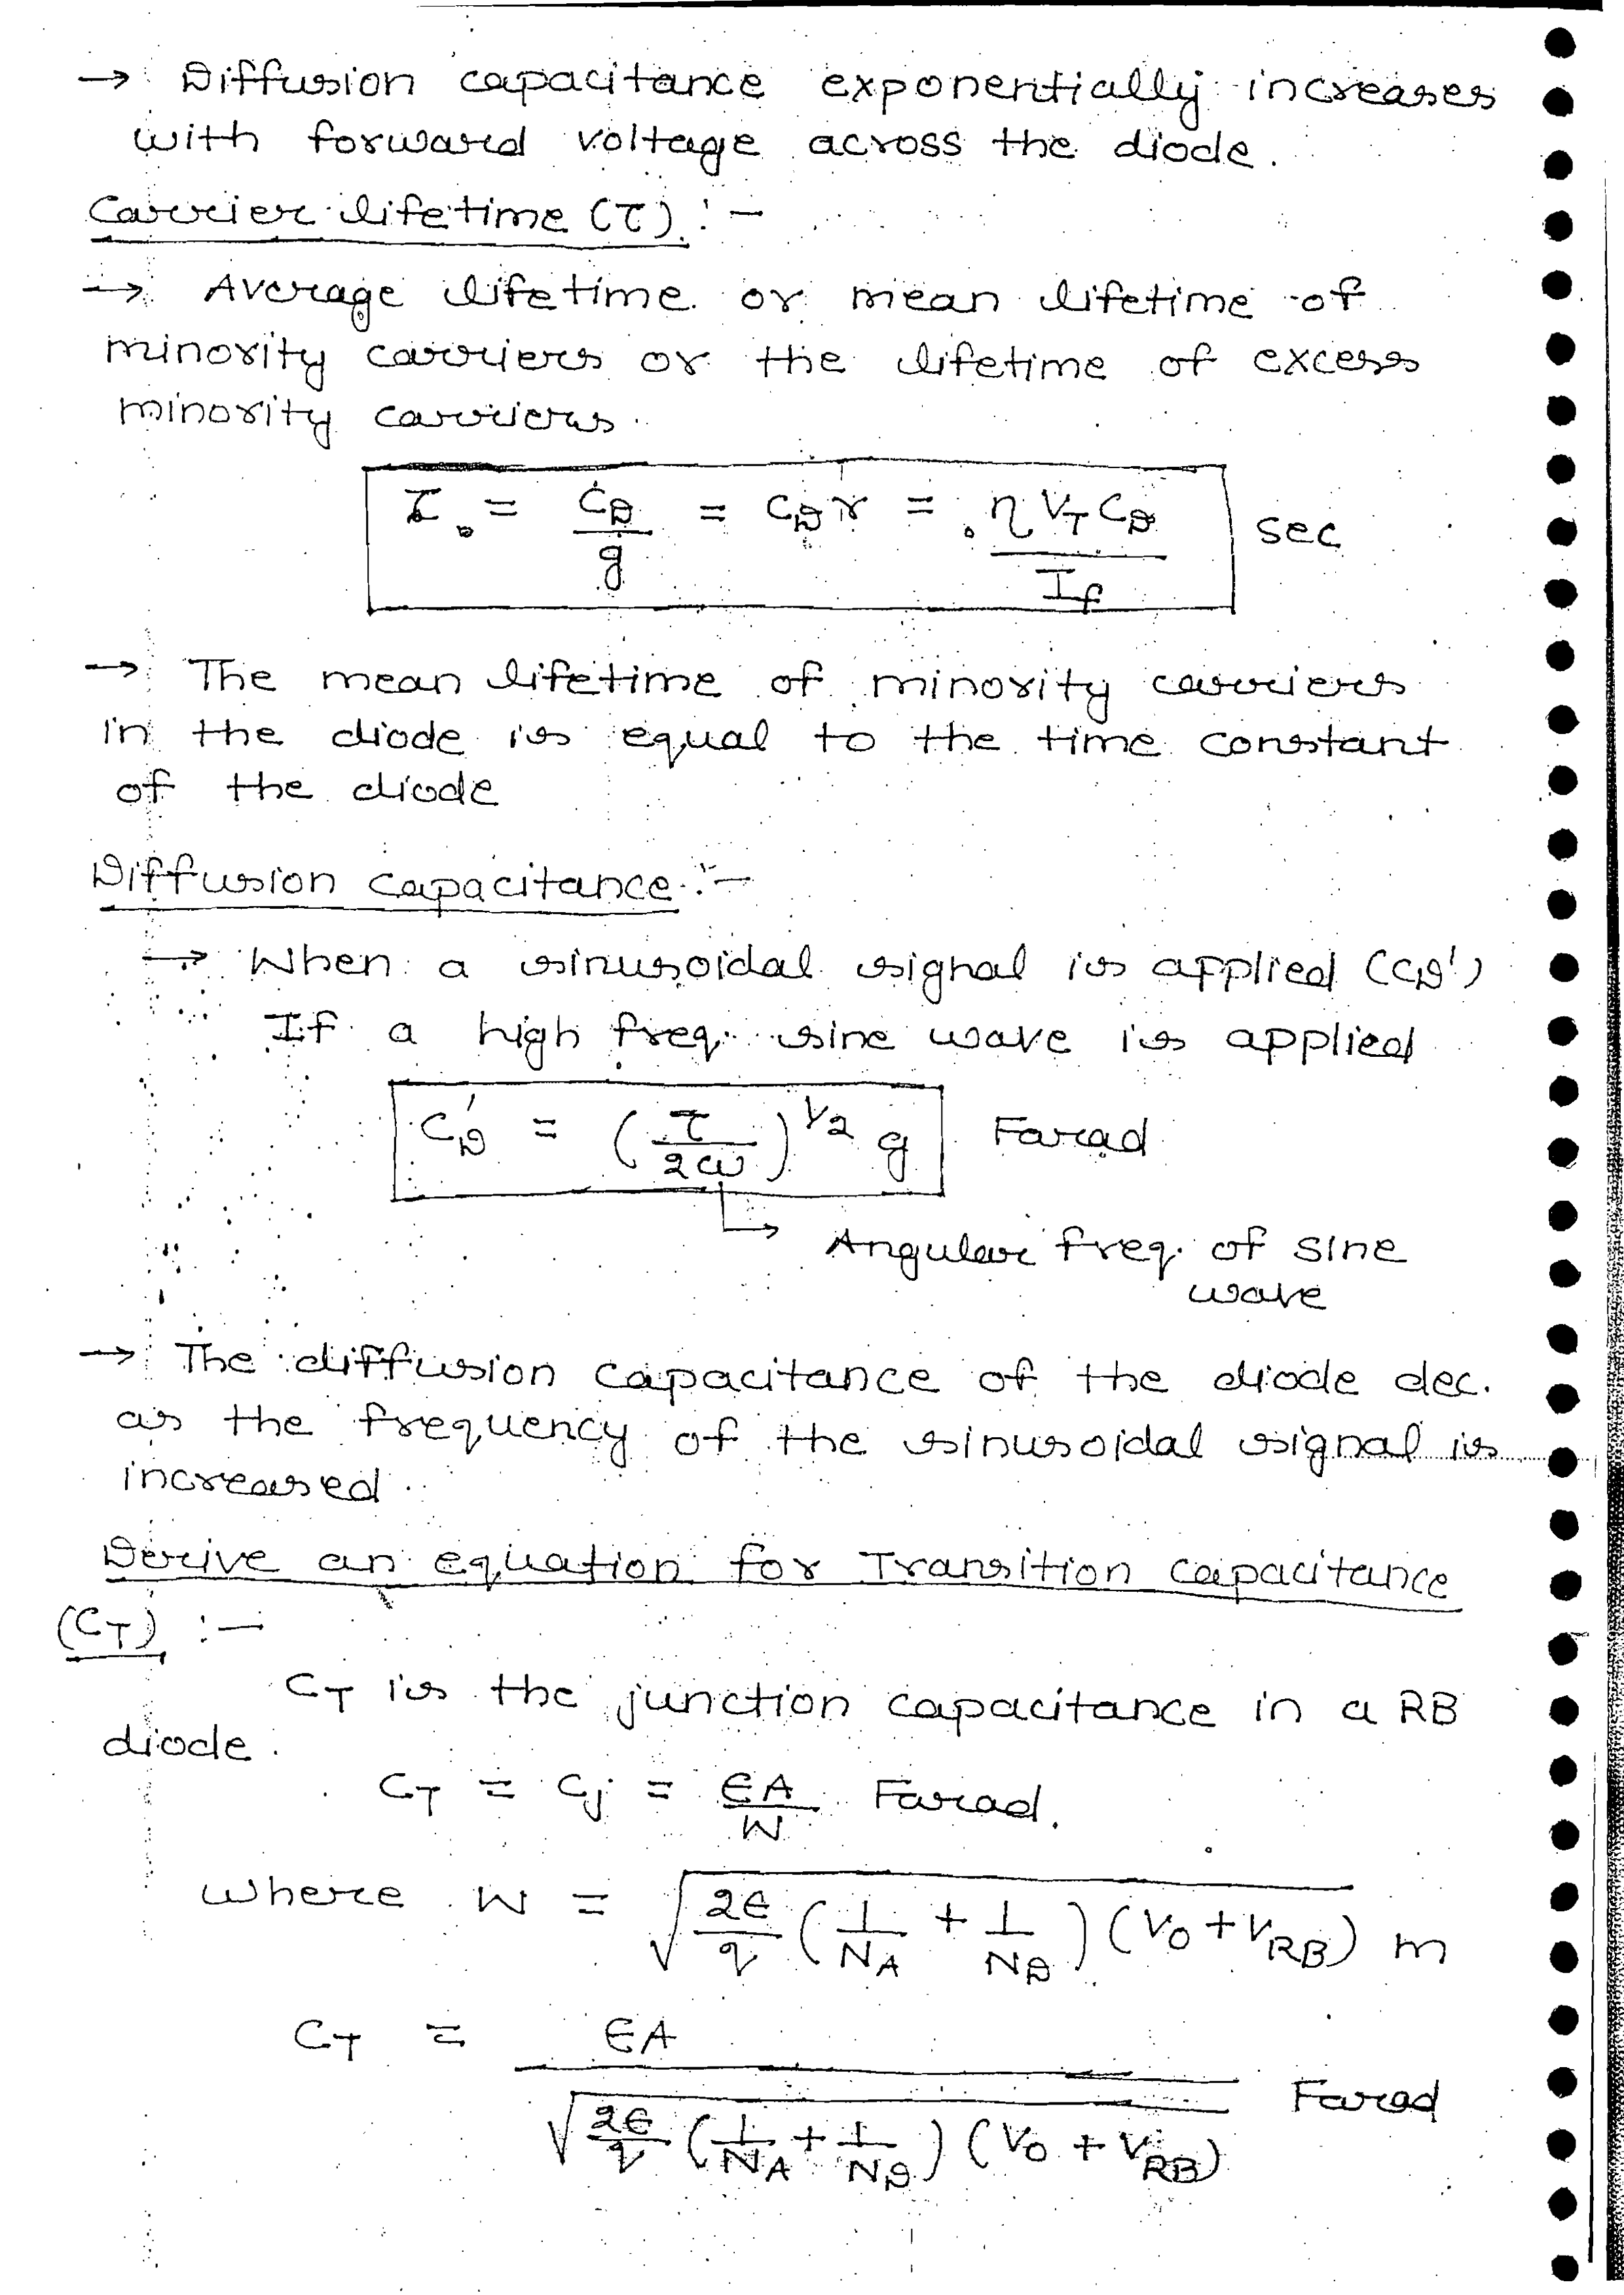 → Diffusion capacitance exponentially increases
with forward voltage across the diode.
Carrier lifetime (τ) :-
→ Average lifetime or mean lifetime of
minority carriers or the lifetime of excess
minority carriers.
τ = C_D / g = C_D r = η V_T C_D / I_f sec
→ The mean lifetime of minority carriers
in the diode is equal to the time constant
of the diode
Diffusion capacitance :-
→ When a sinusoidal signal is applied (C_D')
If a high freq. sine wave is applied
C_D' = (τ / 2ω)^1/2 g Farad
→ Angular freq. of sine
wave
→ The diffusion capacitance of the diode dec.
as the frequency of the sinusoidal signal is
increased.
Derive an equation for Transition capacitance
(C_T) :-
C_T is the junction capacitance in a RB
diode.
C_T = C_j = ϵA / W Farad.
where W = √(2ϵ/q (1/N_A + 1/N_D) (V_0 + V_RB)) m
C_T = ϵA / √(2ϵ/q (1/N_A + 1/N_D) (V_0 + V_RB)) Farad